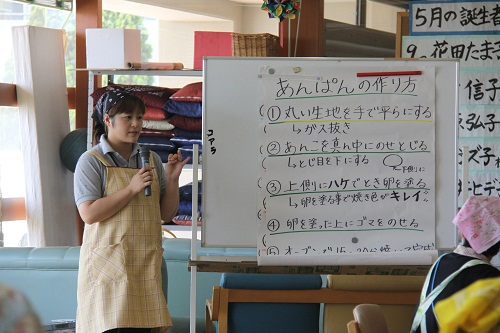 あんぱんの作り方
① 丸い生地を手で平らにする
↳ガス抜き
② あんこを真ん中にのせとじる
↳とじ目を下にする
下側に
③ 上側にハケでとき卵を塗る
↳卵を塗る事で焼き色がキレイ
④ 卵を塗った上にゴマをのせる
⑤ オーブンで15
コアラ
5月の誕生者
9日 花田たま
信子
弘子
ズ子
ヒデ